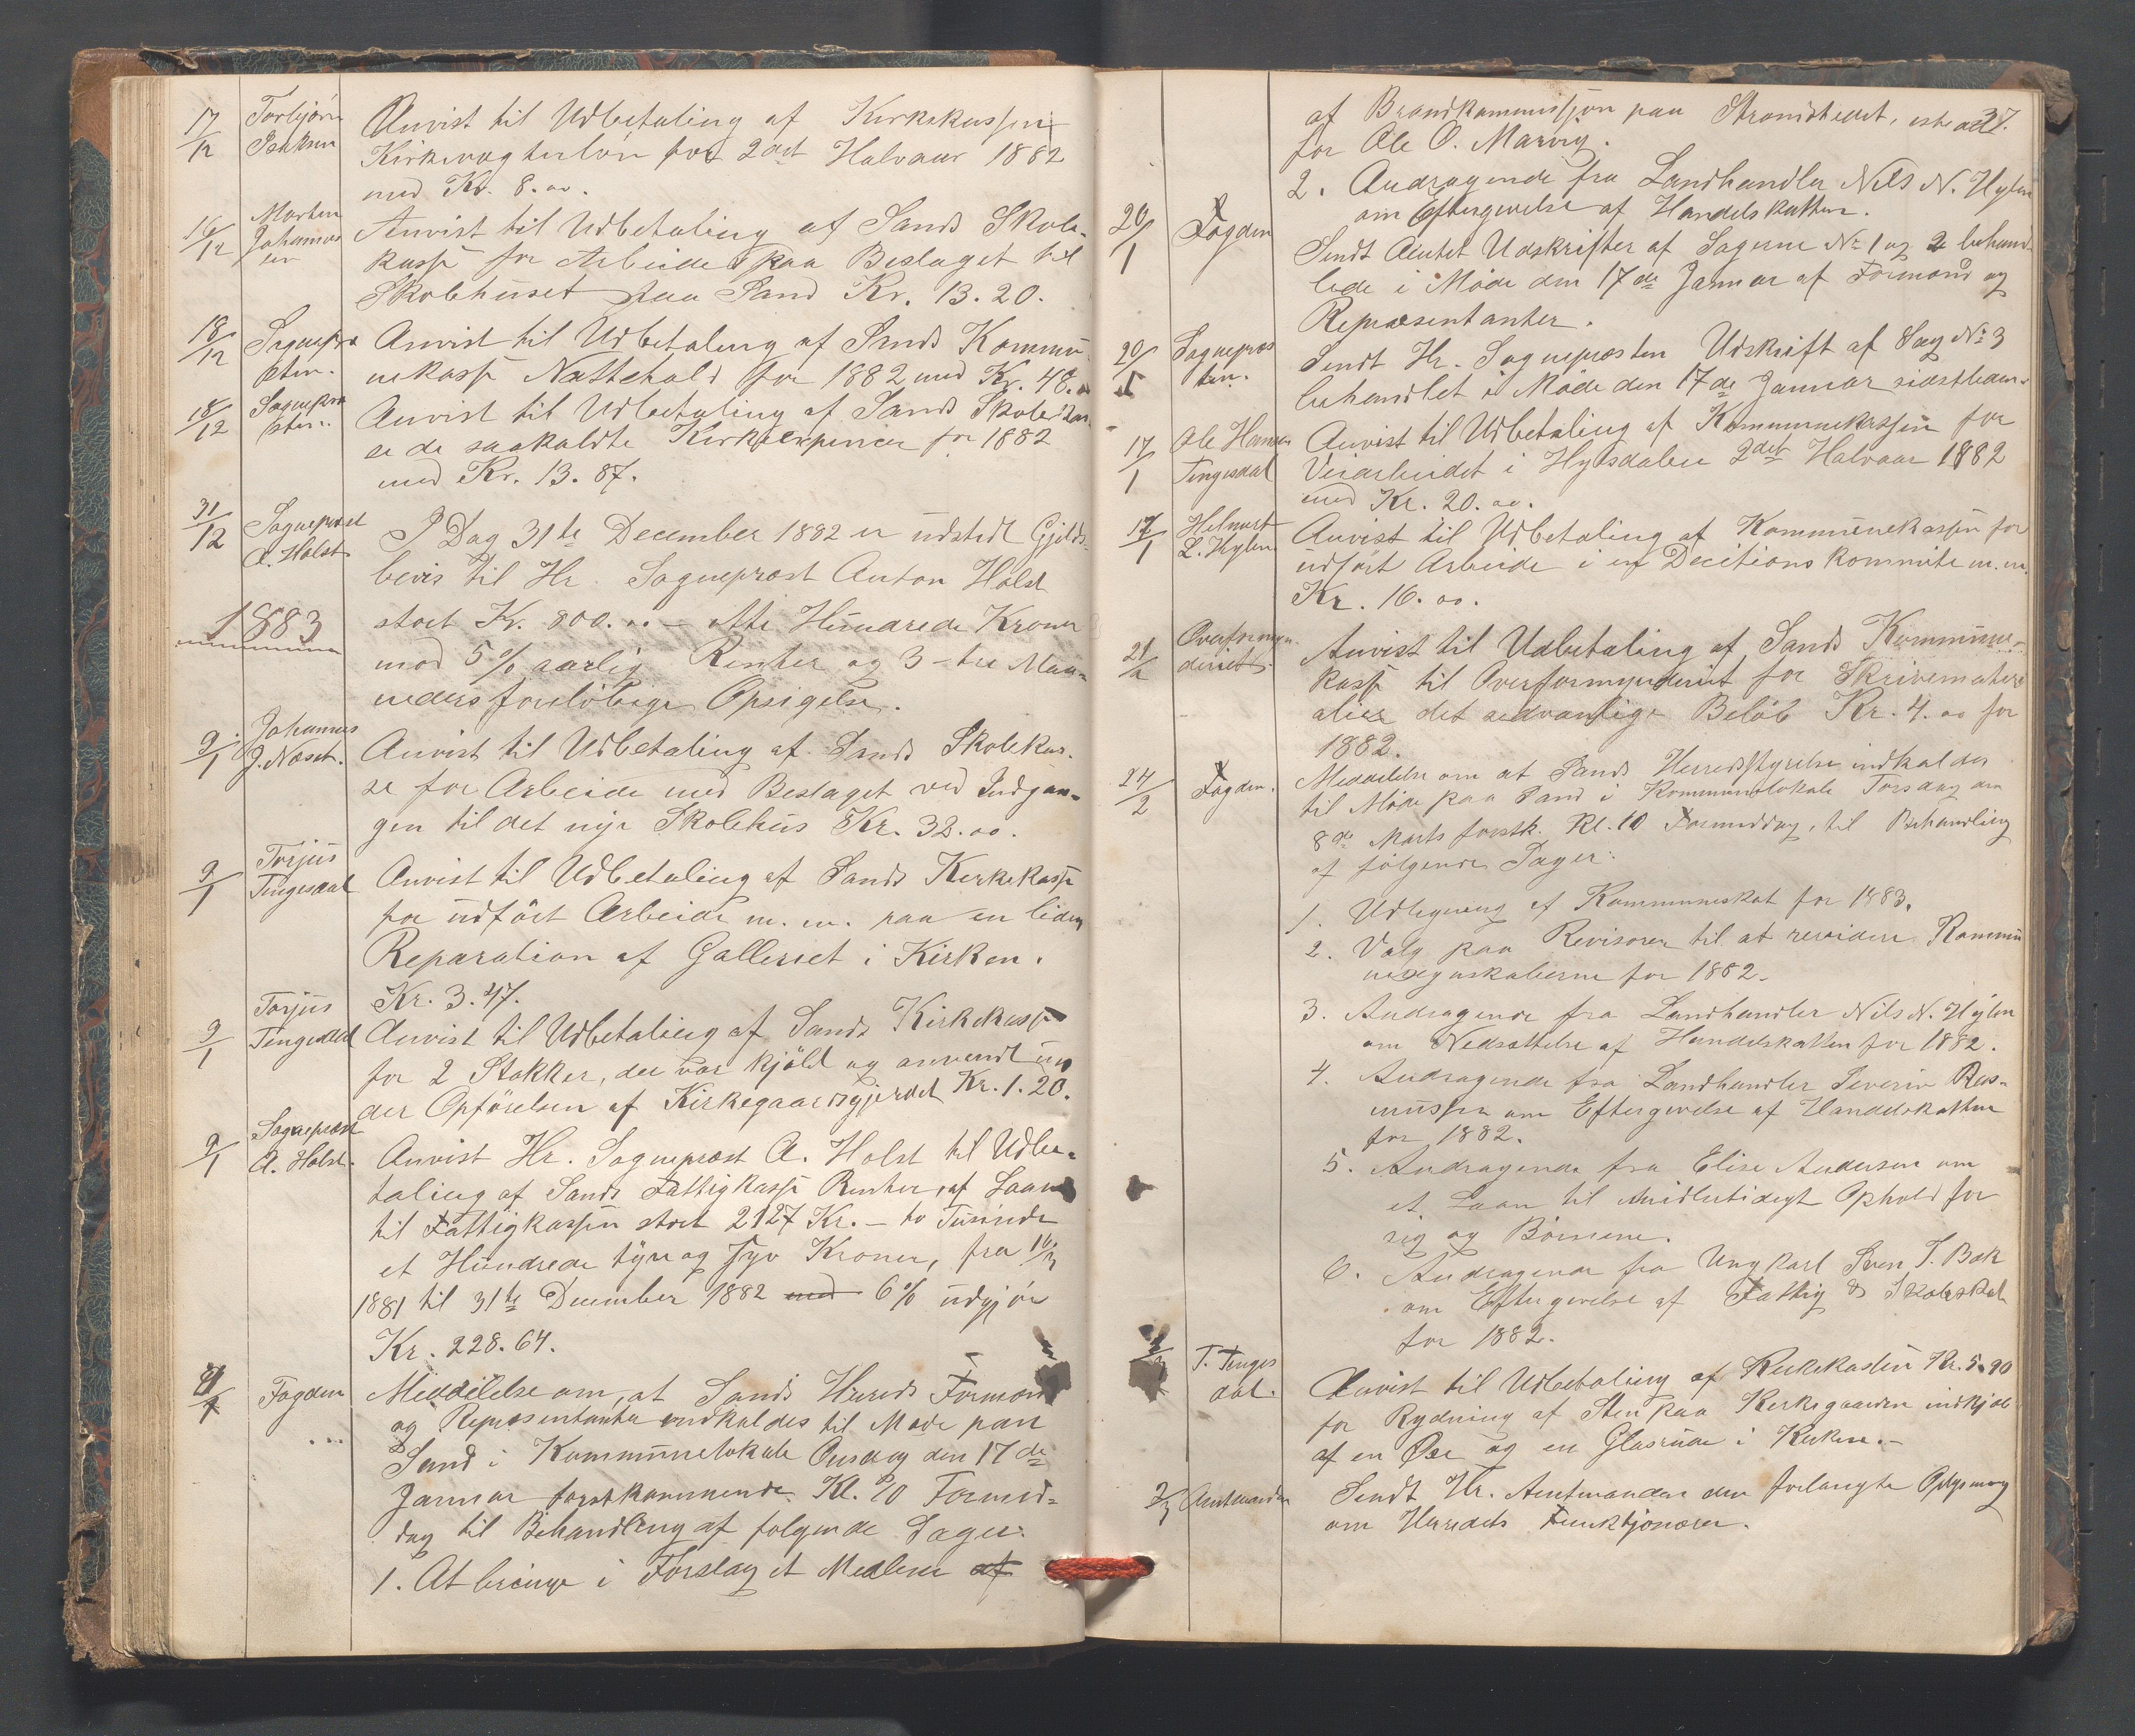 17/12 Torbjørn Anvist til Udbetaling af Kirkekassen
Kirkevægterløn for 2det Halvaar 1882
med Kr. 8.00.
16/12 Morten Johannessen Anvist til Udbetaling af Sands Skole-
kasse for Arbeide paa Beslaget til
Skolehuset paa Sand Kr. 13.20.
18/12 Sognepræ Anvist til Udbetaling af Sands Kommu-
sten. nekasse Nattehold for 1882 med Kr. 48.
18/12 Sognepræ Anvist til Udbetaling af Sands Skolekas
sten. se de saakaldte Kirkeexpencer for 1882
med Kr. 13.87.
31/12 Sogneprest I Dag 31te December 1882 er udstedt Gjelds-
A. Holst bevis til Hr. Sogneprest Anton Holst
1883 stort Kr. 800.00 – Atte Hundrede Kroner
mod 5% aarlig Renter og 3-tre Maa-
neders foreløbige Opsigelse.
9/1 Johannes Anvist til Udbetaling af Sands Skolekas-
J. Næset. se for Arbeide med Beslaget ved Indgan-
gen til det nye Skolehus Kr. 32.00.
9/1 Torjus Anvist til Udbetaling af Sands Kirkekasse
Tengesdal for udført Arbeide m. m. paa en liden
Reparation af Galleriet i Kirken.
Kr. 3.47.
9/1 Torjus Anvist til Udbetaling af Sands Kirkekasse
Tengesdal for 2 Stokker, der var kjøbt og anvendt un
der Opførelsen af Kirkegaardsgjerdet Kr. 1.20.
9/1 Sogneprest Anvist Hr. Sogneprest A. Holst til Udbe-
A. Holst. taling af Sands Fattigkasse Renter, af Laan
til Fattigkassen stort 2127 Kr. – to Tusinde
et Hundrede tyve og syv Kroner, fra
1881 til 31te December 1882 med 6% udgjør
Kr. 228.64.
Fogden Meddelelse om, at Sands Herreds Formænd
og Repræsentanter indkaldes til Møde paa
Sand i Kommunelokale Onsdag den 17de
Januar førstkommende Kl. 10 Formid-
dag til Behandling af følgende Sager:
1. At bringe i Forslag et Medlem af
37.
af Brandkommissjon paa Strandstedet, efter
for Ole O. Marvig.
2. Andragende fra Landhandler Nils N. Hylen
om Eftergivelse af Handelskatten.
20/1 Fogden Sendt Amtet Udskrifter af Sagerne No 1 og 2 behand-
lede i Møde den 17de Januar af Formænd og
Repræsentanter.
20/1 Sognepræs Sendt Hr. Sognepræsten Udskrift af Sag No 3
ten. behandlet i Møde den 17de Januar sidstleden.
17/1 Ole Hansen Anvist til Udbetaling af Kommunekassen for
Tengesdal Veiarbeidet i Hylsdalen 2det Halvaar 1882
med Kr. 20.00.
17/1 Helmert Anvist til Udbetaling af Kommunekassen for
L. Hylen udført Arbeide i en Decitions Kommite m. m.
Kr. 16.00.
21/2 Overformyn- Anvist til Udbetaling af Sands Kommune-
deriet. kasse til Overformynderiet for Skrivemateri
alier det sedvanlige Beløb Kr. 4.00 for
1882.
24/2 Fogden. Meddelelse om at Sands Herredsstyrelse indkaldes
til Møde paa Sand i Kommunelokale Torsdag den
8de Marts førstk. Kl. 10 Formiddag, til Behandling
af følgende Sager:
1. Udligning af Kommuneskat for 1883.
2. Valg paa Revisorer til at revidere Kommu
neregnskaberne for 1882.
3. Andragende fra Landhandler Nils N. Hylen
om Nedsættelse af Handelskatten for 1882.
4. Andragende fra Landhandler Severin Ras-
mussen om Eftergivelse af Handelskatten
for 1882.
5. Andragende fra Elise Andersen om
et Laan til midlertidigt Ophold for
sig og Børnene.
6. Andragende fra Ungkarl Sven T. Bak
om Eftergivelse af Fattig & Skoleskat
for 1882.
T. Tenges Anvist til Udbetaling af Kirkekassen Kr. 5.90
dal. for Rydning af Sten paa Kirkegaarden indkjøb
af en Øse og en Glasrude i Kirken.-
2/3 Amtmanden Sendt Hr. Amtmanden den forlangte Oplysning
om Herredets Funktjonærer.